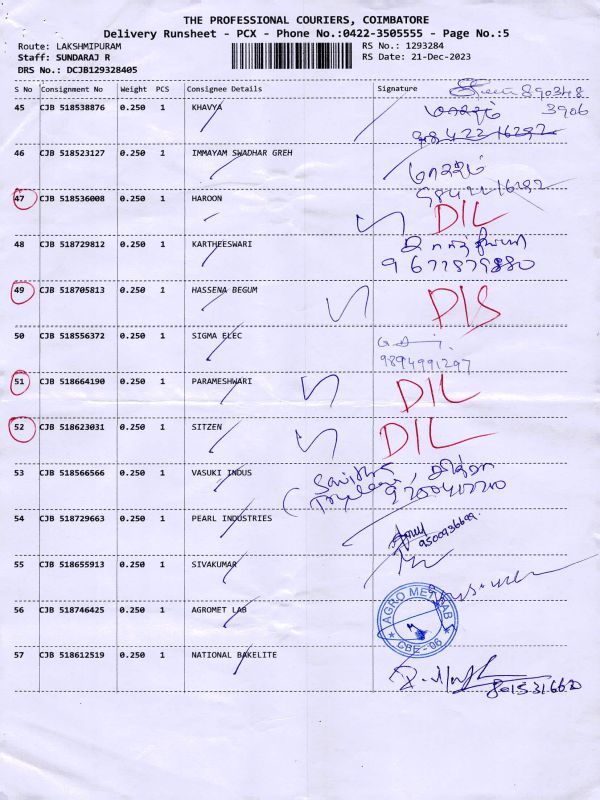 THE PROFESSIONAL COURIERS, COIMBATORE
Delivery Runsheet - PCX - Phone No.:0422-3505555 - Page No.:5
Route: LAKSHMIPURAM RS No.: 1293284
Staff: SUNDARAJ R RS Date: 21-Dec-2023
DRS No.: DCJB129328405
S No Consignment No Weight PCS Consignee Details Signature
45 CJB 518538876 0.250 1 KHAVYA
3906
9842216292
46 CJB 518523127 0.250 1 IMMAYAM SWADHAR GREH
9842216292
47 CJB 518536008 0.250 1 HAROON DIL
48 CJB 518729812 0.250 1 KARTHEESWARI
9677879880
49 CJB 518705813 0.250 1 HASSENA BEGUM DIS
50 CJB 518556372 0.250 1 SIGMA ELEC
9894991297
51 CJB 518664190 0.250 1 PARAMESHWARI DIL
52 CJB 518623031 0.250 1 SITZEN DIL
53 CJB 518566566 0.250 1 VASUKI INDUS
54 CJB 518729663 0.250 1 PEARL INDUSTRIES
9500936699
55 CJB 518655913 0.250 1 SIVAKUMAR
56 CJB 518746425 0.250 1 AGROMET LAB AGRO MET LAB
CBE-06
57 CJB 518612519 0.250 1 NATIONAL BAKELITE